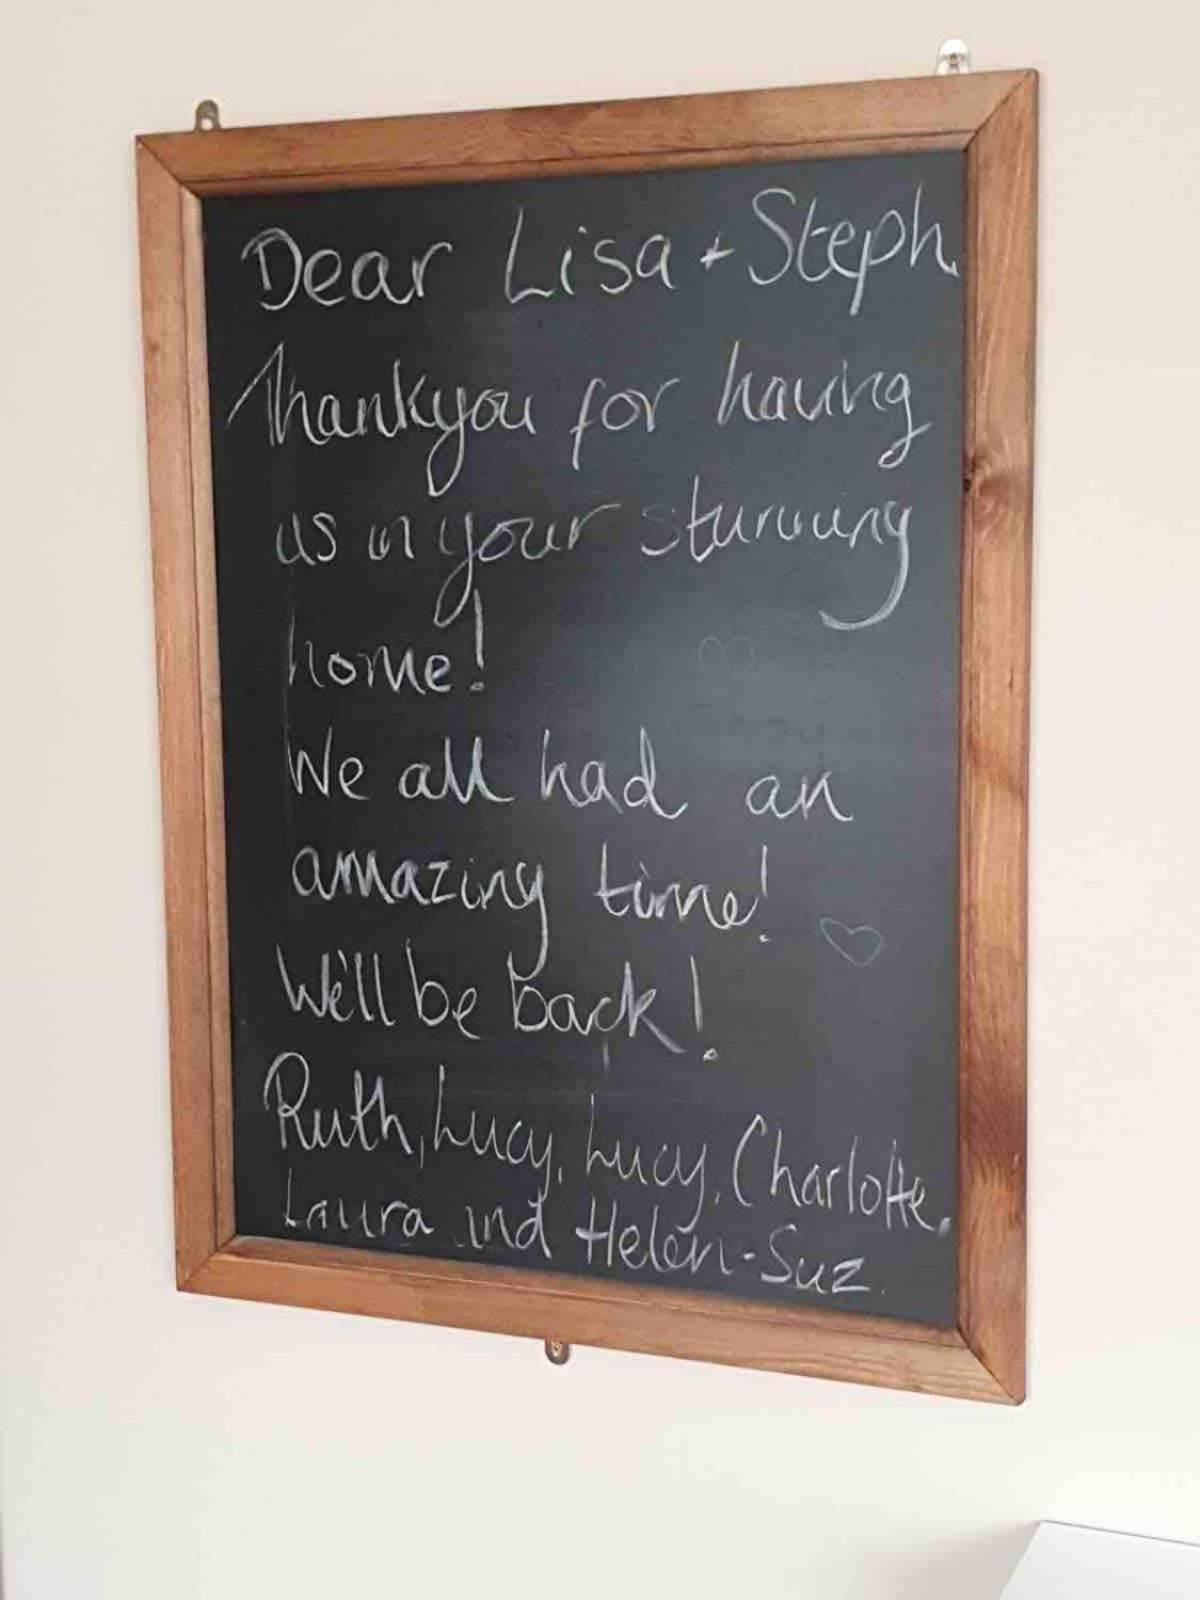 Dear Lisa + Steph
Thankyou for having
us in your stunning
home!
We all had an
amazing time!
We'll be back!
Ruth, Lucy, Lucy, Charlotte,
Laura and Helen-Suz.